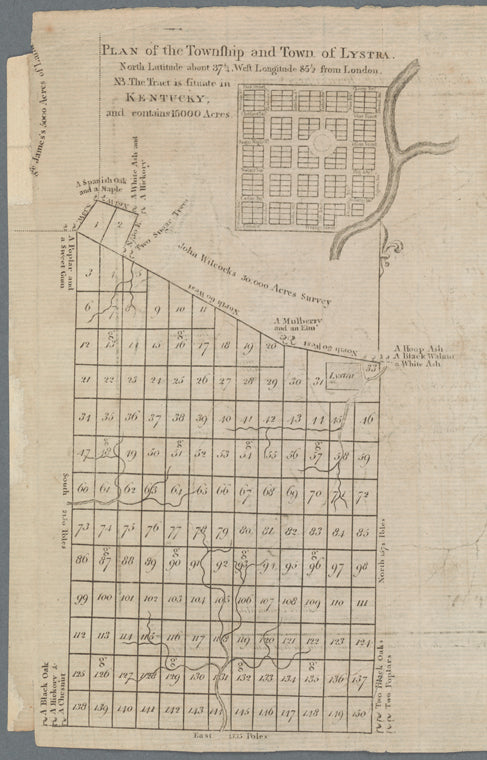 PLAN of the Township and Town of LYSTRA.
North Latitude about 37½ West Longitude 85½ from London.
NB. The Tract is situate in
KENTUCKY,
and contains 15000 Acres
James's 5000 Acres of Land
A Spanish Oak
and a Maple
A White Ash and
A Hickory
Two Sugar Trees
A Poplar and
a Sweet Gum
John Wilcocks 30.000 Acres Survey
North 60 West
A Mulberry
and an Elm
North 80 West
A Hoop Ash
A Black Walnut
a White Ash
Lystra
1 2
3 4 5
6 7 8 9 10 11
12 13 14 15 16 17 18 19 20
21 22 23 24 25 26 27 28 29 30 31 33
34 35 36 37 38 39 40 41 42 43 44 45 46
47 48 49 50 51 52 53 54 55 56 57 58 59
60 61 62 63 64 65 66 67 68 69 70 71 72
73 74 75 76 77 78 79 80 81 82 83 84 85
86 87 88 89 90 91 92 93 94 95 96 97 98
99 100 101 102 103 104 105 106 107 108 109 110 111
112 113 114 115 116 117 118 119 120 121 122 123 124
125 126 127 128 129 130 131 132 133 134 135 136 137
138 139 140 141 142 143 144 145 146 147 148 149 150
South 2150 Poles
North 1674 Poles
A Black Oak
A Hickory &
A Chesnut
Two Black Oaks
Two Poplars
East 1335 Poles